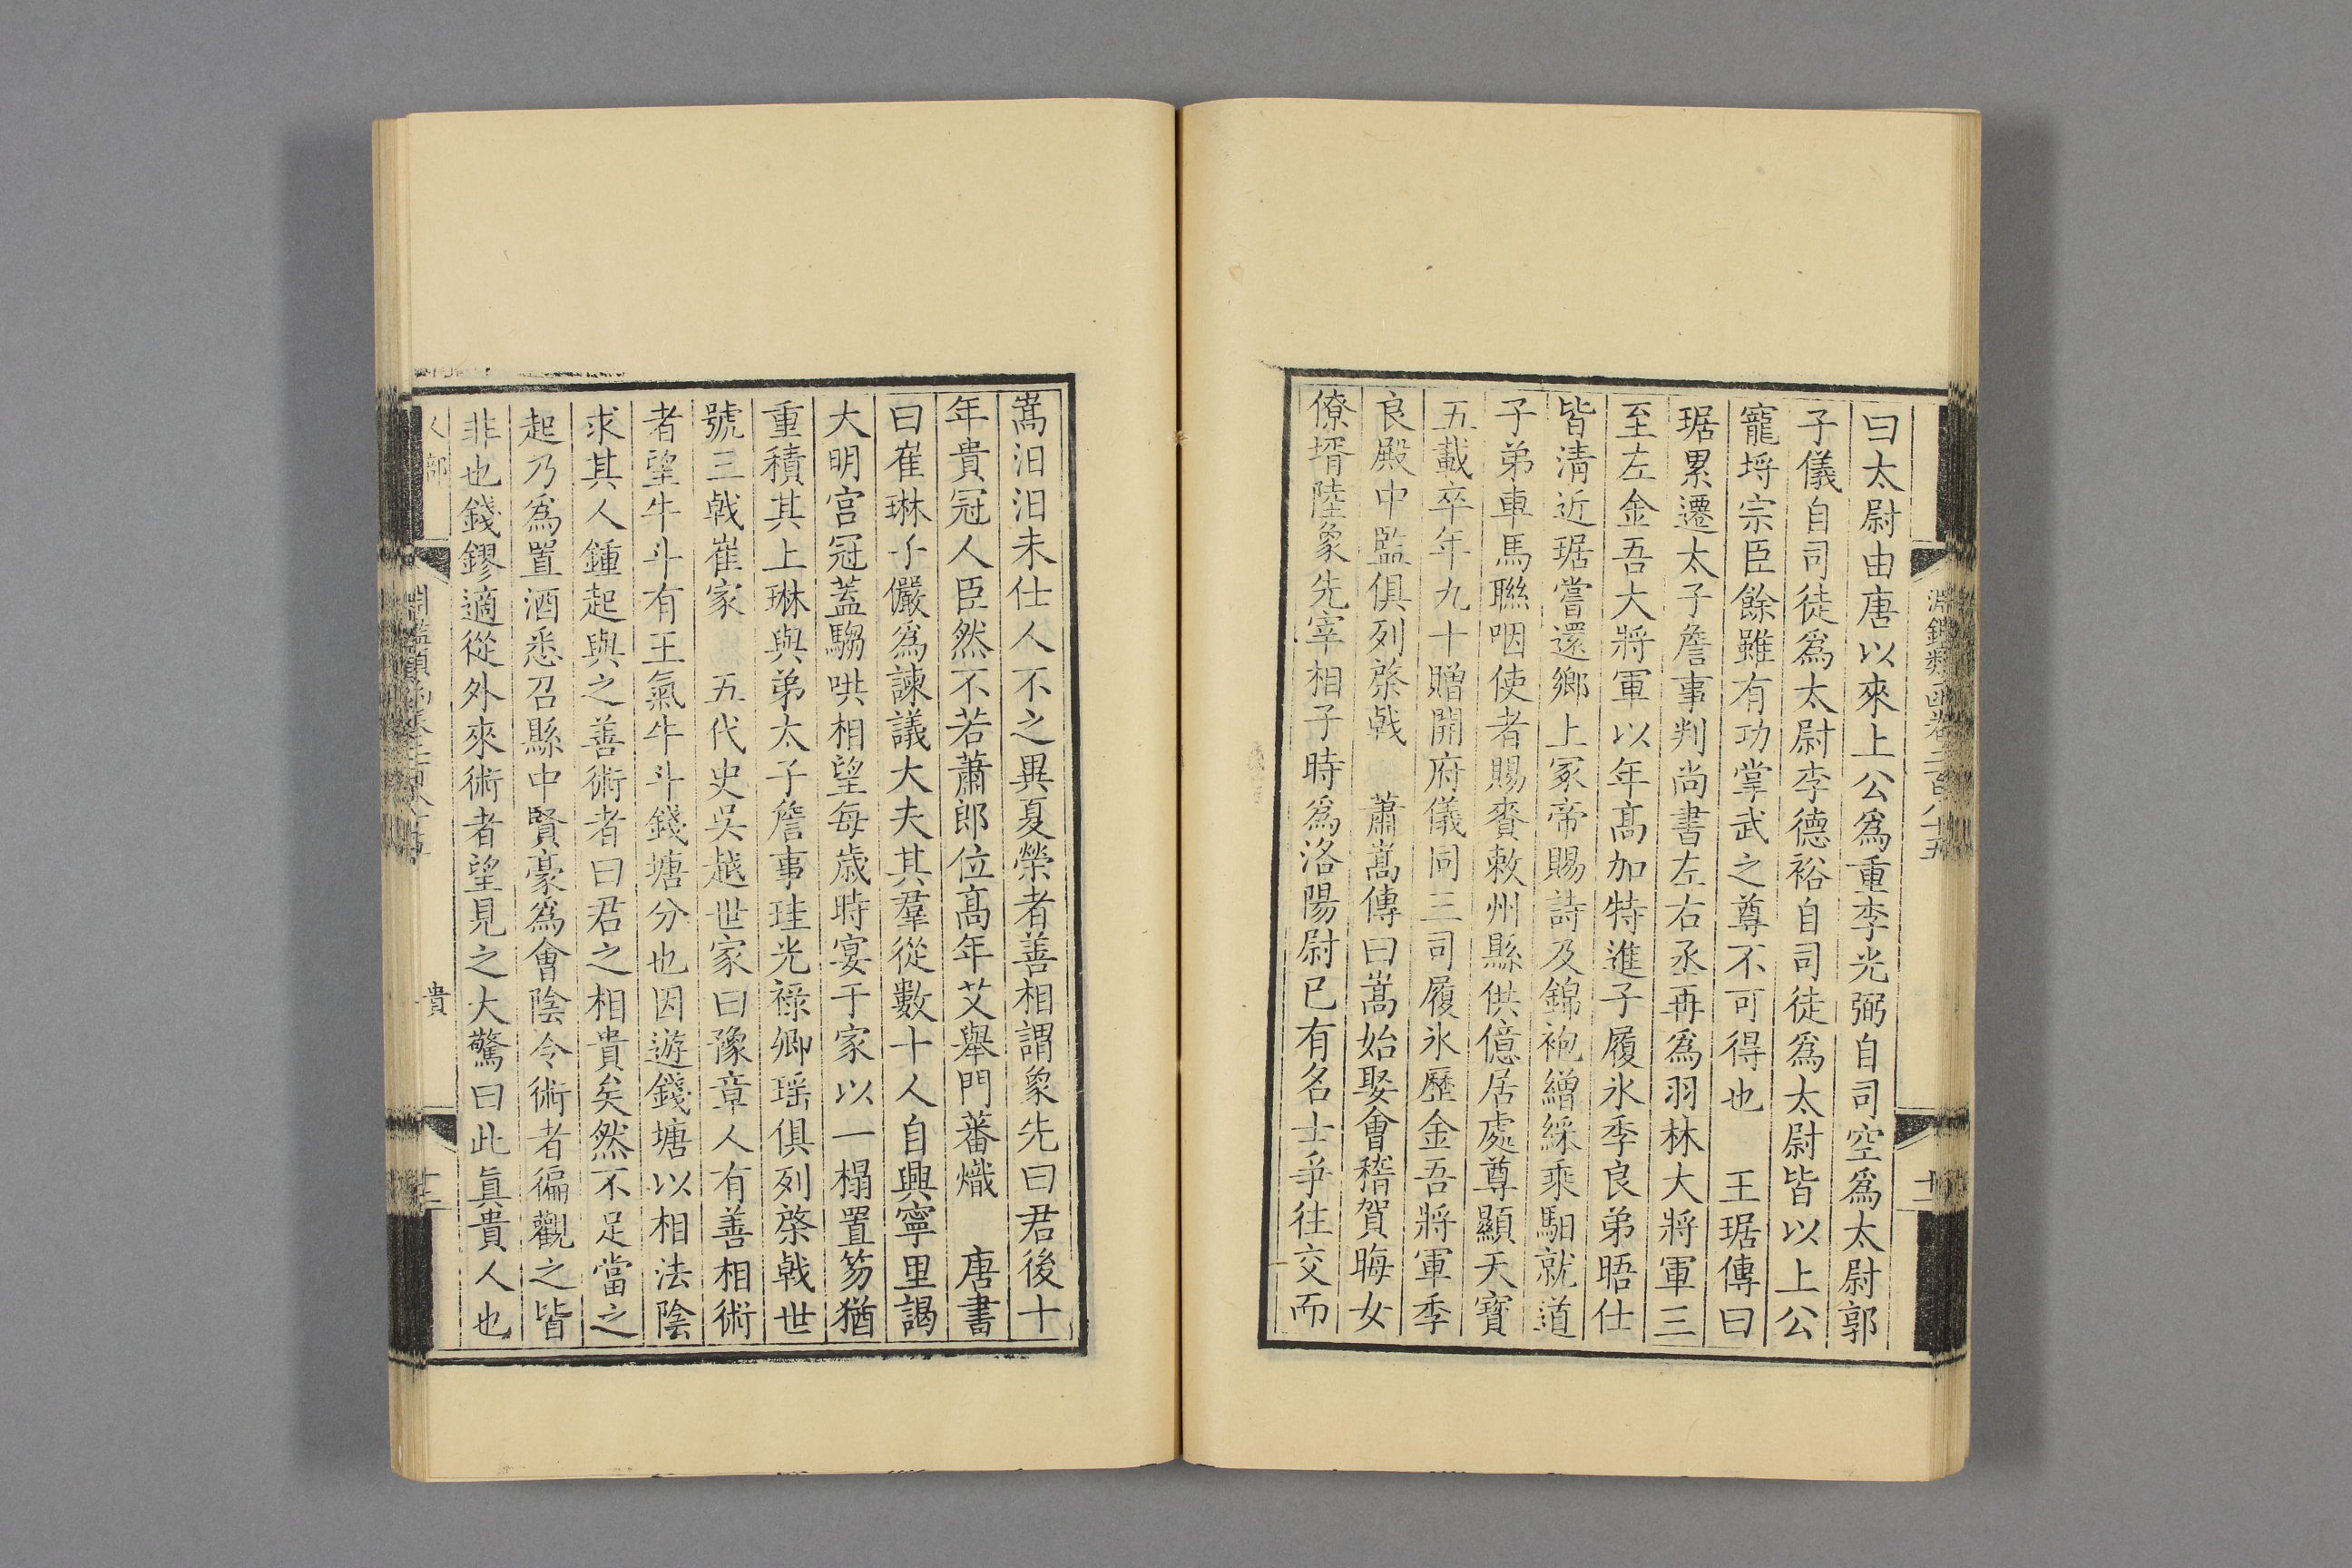 曰太尉由唐以來上公爲重李光弼自司空爲太尉郭
子儀自司徒爲太尉李德裕自司徒爲太尉皆以上公
寵埒宗臣餘雖有功掌武之尊不可得也　王琚傳曰
琚累遷太子詹事判尚書左右丞再爲羽林大將軍三
至左金吾大將軍以年高加特進子履氷季良弟晤仕
皆清近琚嘗還鄉上冢帝賜詩及錦袍繒綵乘馹就道
子弟車馬聯咽使者賜賚敕州縣供億居處尊顯天寶
五載卒年九十贈開府儀同三司履氷歷金吾將軍季
良殿中監俱列棨戟　蕭嵩傳曰嵩始娶會稽賀晦女
僚壻陸象先宰相子時爲洛陽尉已有名士爭往交而
嵩汩汩未仕人不之異夏榮者善相謂象先曰君後十
年貴冠人臣然不若蕭郎位高年艾舉門蕃熾　唐書
曰崔琳子儼爲諫議大夫其羣從數十人自興寧里謁
大明宮冠蓋騶哄相望每歲時宴于家以一榻置笏猶
重積其上琳與弟太子詹事珪光祿卿瑤俱列棨戟世
號三戟崔家　五代史吳越世家曰豫章人有善相術
者望牛斗有王氣牛斗錢塘分也因遊錢塘以相法陰
求其人鍾起與之善術者曰君之相貴矣然不足當之
起乃爲置酒悉召縣中賢豪爲會陰令術者徧觀之皆
非也錢鏐適從外來術者望見之大驚曰此眞貴人也
人部
貴